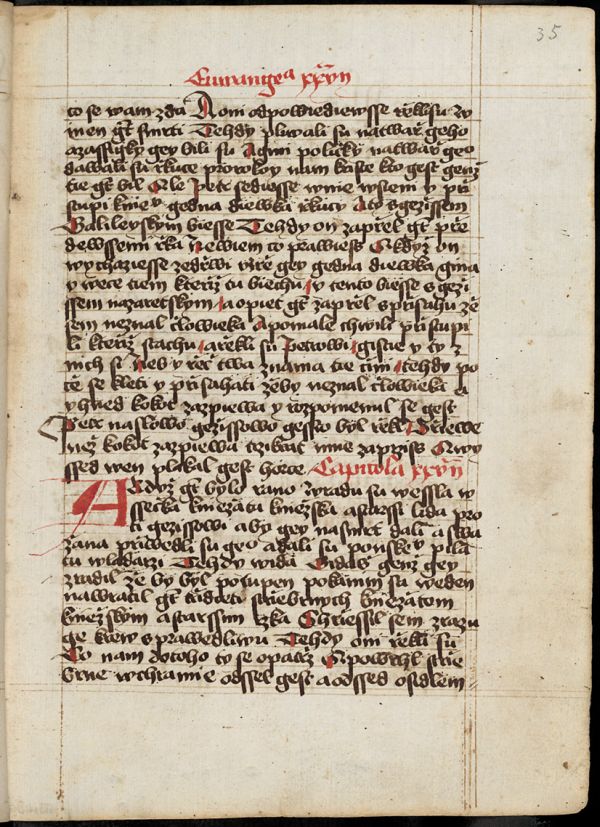 35
to se wam zda A oni odpowiediewsse rzekli su w
inen gt smrti Tehdy pliwali su natwarz geho
azassigky gey bili su A gini policky natwarz geo
dawali su rzkuce prorokoy nam kriste kto gest genz
tie gt bil Ale Petr sediesse wnie wsieni y pri
stupi knie gedna diewka rzkuci A ty s gezissem
Galileyskym biesse Tehdy on zaprzel gt przie
dewssiemi rzka Newiem co prawiess A kdyz on
wychaziesse zedrzwi uzrie gey gedna diewka gina
y wece tiem kterziz tu biechu y tento biesse s gezi
ssem nazaretskym a opiet gt zaprzel s prisahu ze
sem neznal czlowieka A pomale chwili pristupi
li kteriz stachu a rzekli su Petrowi gistie y ty z
nich si Neb y rzec twa znama tie cini tehdy po
cie se kleti y prisahati zeby neznal czlowieka A
yhned kokot zazpiewa y rozpomenul se gest
Petr naslowo gezissowo gesto byl rzekl Drziewe
nez kokot zazpiewa trzikrat mne zaprziss A wy
ssed wen plakal gest horce Capitola xxvii
A kdyz gt bylo rano wradu su wessla w
ssecka kniezata kniezska a starssi lida pro
ti gezissowi aby gey nasmrt dali a swa
zana priwedli su geo a dali su ponske pila
tu wladarzi Tehdy wida Gidass genz gey
zradil ze by byl potupen pokanim su weden
nawratil gt tridceti striebrnych kniezatem
kniezskym a starssim rzka Zhrziessil sem zrazu
ge krew sprawedliwu Tehdy oni rzekli su
Co nam dotoho ty se opatrz A powrhl strzie
brne wchramie odssel gest a odssed osidlem